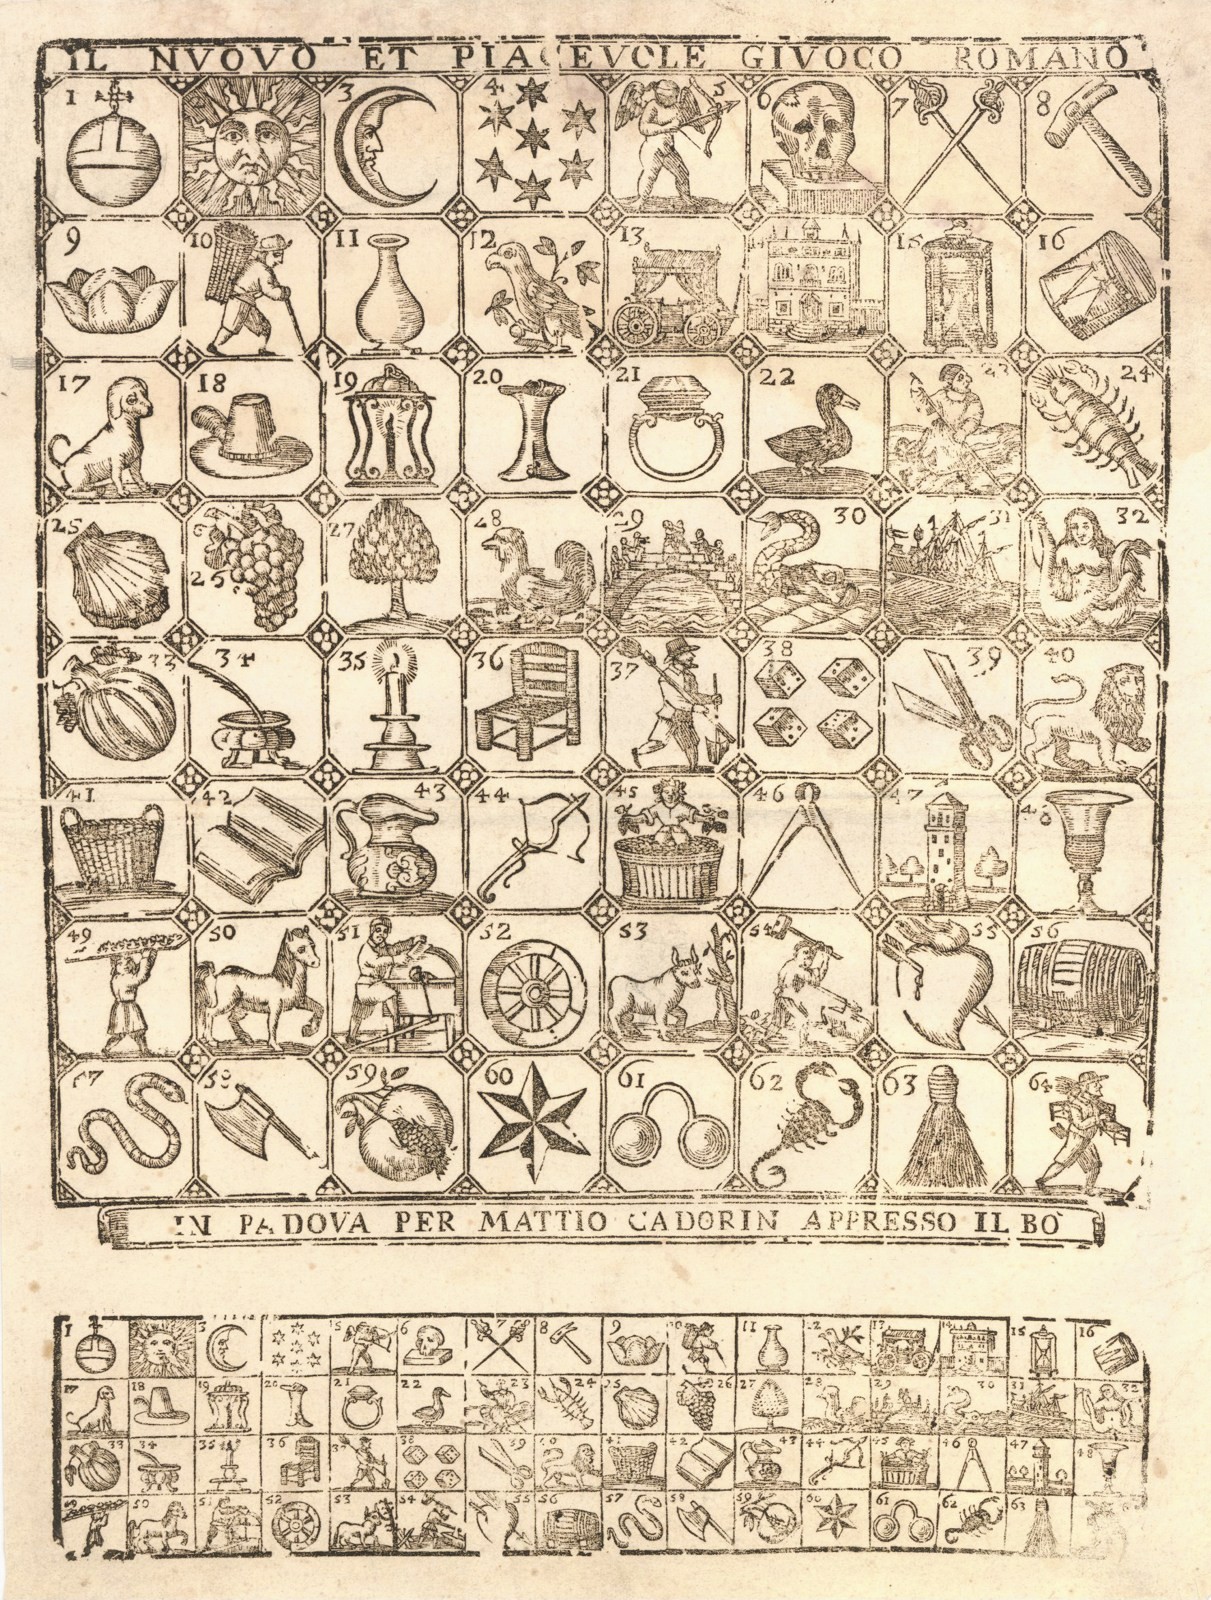 IL NVOVO ET PIACEVOLE GIVOCO ROMANO
1 2 3 4 5 6 7 8
9 10 11 12 13 15 16
17 18 19 20 21 22 23 24
25 26 27 28 29 30 31 32
33 34 35 36 37 38 39 40
41 42 43 44 45 46 47 48
49 50 51 52 53 54 55 56
57 58 59 60 61 62 63 64
IN PADOVA PER MATTIO CADORIN APPRESSO IL BO
1 3 5 6 7 8 9 10 11 12 13 14 15 16
17 18 19 20 21 22 23 24 25 26 27 28 29 30 31 32
33 34 35 36 37 38 39 40 41 42 43 44 45 46 47 48
49 50 51 52 53 54 55 56 57 58 59 60 61 62 63